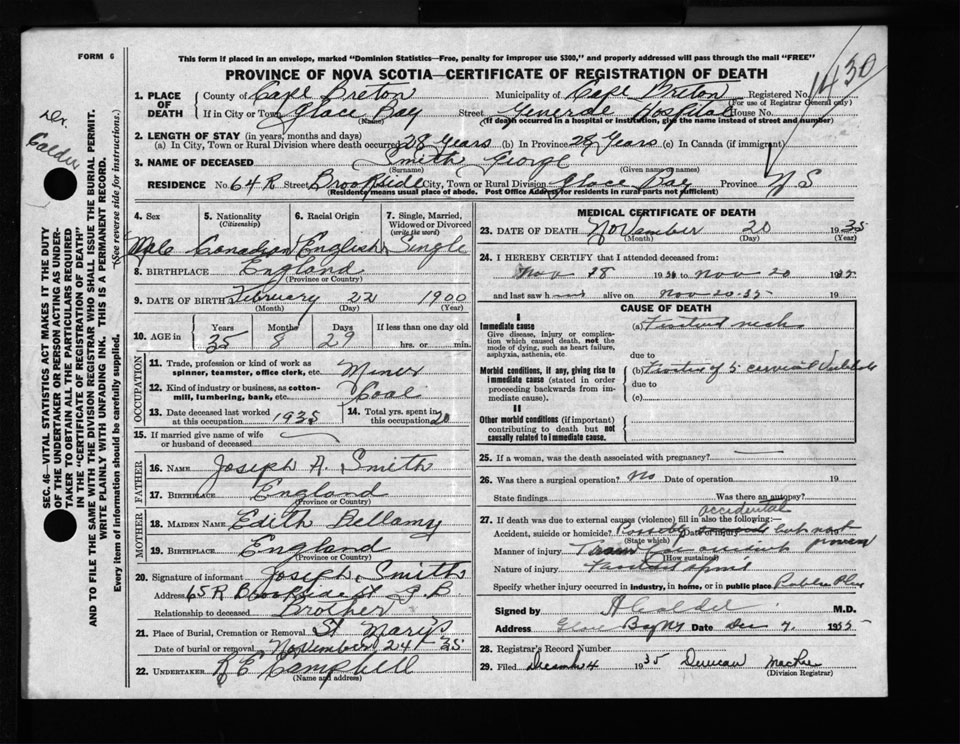 FORM 6
This form if placed in an envelope, marked "Dominion Statistics—Free, penalty for improper use $300," and properly addressed will pass through the mail "FREE"
PROVINCE OF NOVA SCOTIA—CERTIFICATE OF REGISTRATION OF DEATH
1430
Dr. Calder
SEC. 46—VITAL STATISTICS ACT MAKES IT THE DUTY
OF THE UNDERTAKER OR PERSON ACTING AS UNDER-
TAKER TO OBTAIN ALL THE PARTICULARS REQUIRED
IN THE "CERTIFICATE OF REGISTRATION OF DEATH"
AND TO FILE THE SAME WITH THE DIVISION REGISTRAR WHO SHALL ISSUE THE BURIAL PERMIT.
WRITE PLAINLY WITH UNFADING INK. THIS IS A PERMANENT RECORD.
Every item of information should be carefully supplied. (See reverse side for instructions.)
1. PLACE OF DEATH
County of Cape Breton Municipality of Cape Breton Registered No.
(For use of Registrar General only)
If in City or Town Glace Bay Street General Hospital House No.
(Name) (If death occurred in a hospital or institution, give the name instead of street and number)
2. LENGTH OF STAY (in years, months and days)
(a) In City, Town or Rural Division where death occurred 28 Years (b) In Province 28 Years (c) In Canada (if immigrant)
3. NAME OF DECEASED Smith George
(Surname) (Given name or names)
RESIDENCE No. 64 R Street Brookside City, Town or Rural Division Glace Bay Province N S
(Residence means usual place of abode. Post Office Address for residents in rural parts not sufficient)
4. Sex 5. Nationality 6. Racial Origin 7. Single, Married,
(Citizenship) Widowed or Divorced
(write the word)
Male Canadian English Single
8. BIRTHPLACE England
(Province or Country)
9. DATE OF BIRTH February 22 1900
(Month) (Day) (Year)
10. AGE in Years Months Days If less than one day old
35 8 29 hrs. or min.
OCCUPATION
11. Trade, profession or kind of work as
spinner, teamster, office clerk, etc. Miner
12. Kind of industry or business, as cotton-
mill, lumbering, bank, etc. Coal
13. Date deceased last worked 14. Total yrs. spent in
at this occupation 1935 this occupation 20
15. If married give name of wife
or husband of deceased
FATHER
16. NAME Joseph A. Smith
17. BIRTHPLACE England
(Province or Country)
MOTHER
18. MAIDEN NAME Edith Bellamy
19. BIRTHPLACE England
(Province or Country)
20. Signature of informant Joseph Smith
Address 65 R Brookside St G.B
Relationship to deceased Brother
21. Place of Burial, Cremation or Removal St Mary's
Date of burial or removal November 24 - 1935
22. UNDERTAKER Campbell
(Name and address)
MEDICAL CERTIFICATE OF DEATH
23. DATE OF DEATH November 20 1935
(Month) (Day) (Year)
24. I HEREBY CERTIFY that I attended deceased from:
Nov 18 19 to Nov 20 1935
and last saw h alive on Nov 20-35 19
CAUSE OF DEATH
I
Immediate cause (a) neck
Give disease, injury or complica-
tion which caused death, not the
mode of dying, such as heart failure,
asphyxia, asthenia, etc. due to
Morbid conditions, if any, giving rise to (b) of 5 cervical
immediate cause (stated in order due to
proceeding backwards from im-
mediate cause). (c)
II
Other morbid conditions (if important)
contributing to death but not
causally related to immediate cause.
25. If a woman, was the death associated with pregnancy?
26. Was there a surgical operation? No Date of operation 19
State findings Was there an autopsy?
27. If death was due to external causes (violence) fill in also the following:—
accidental
Accident, suicide or homicide? Possibly but not proven Date of injury 19
(State which)
Manner of injury Car accident
(How sustained)
Nature of injury
Specify whether injury occurred in industry, in home, or in public place Public Place
Signed by A Calder M.D.
Address Glace Bay NS Date Dec 7. 1935
28. Registrar's Record Number
29. Filed December 4 1935 Duncan MacRae
(Division Registrar)